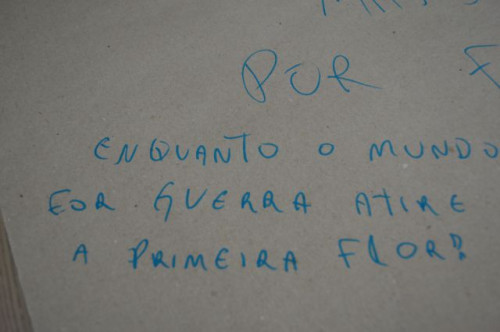 POR F
ENQUANTO O MUNDO
FOR GUERRA ATIRE
A PRIMEIRA FLOR?